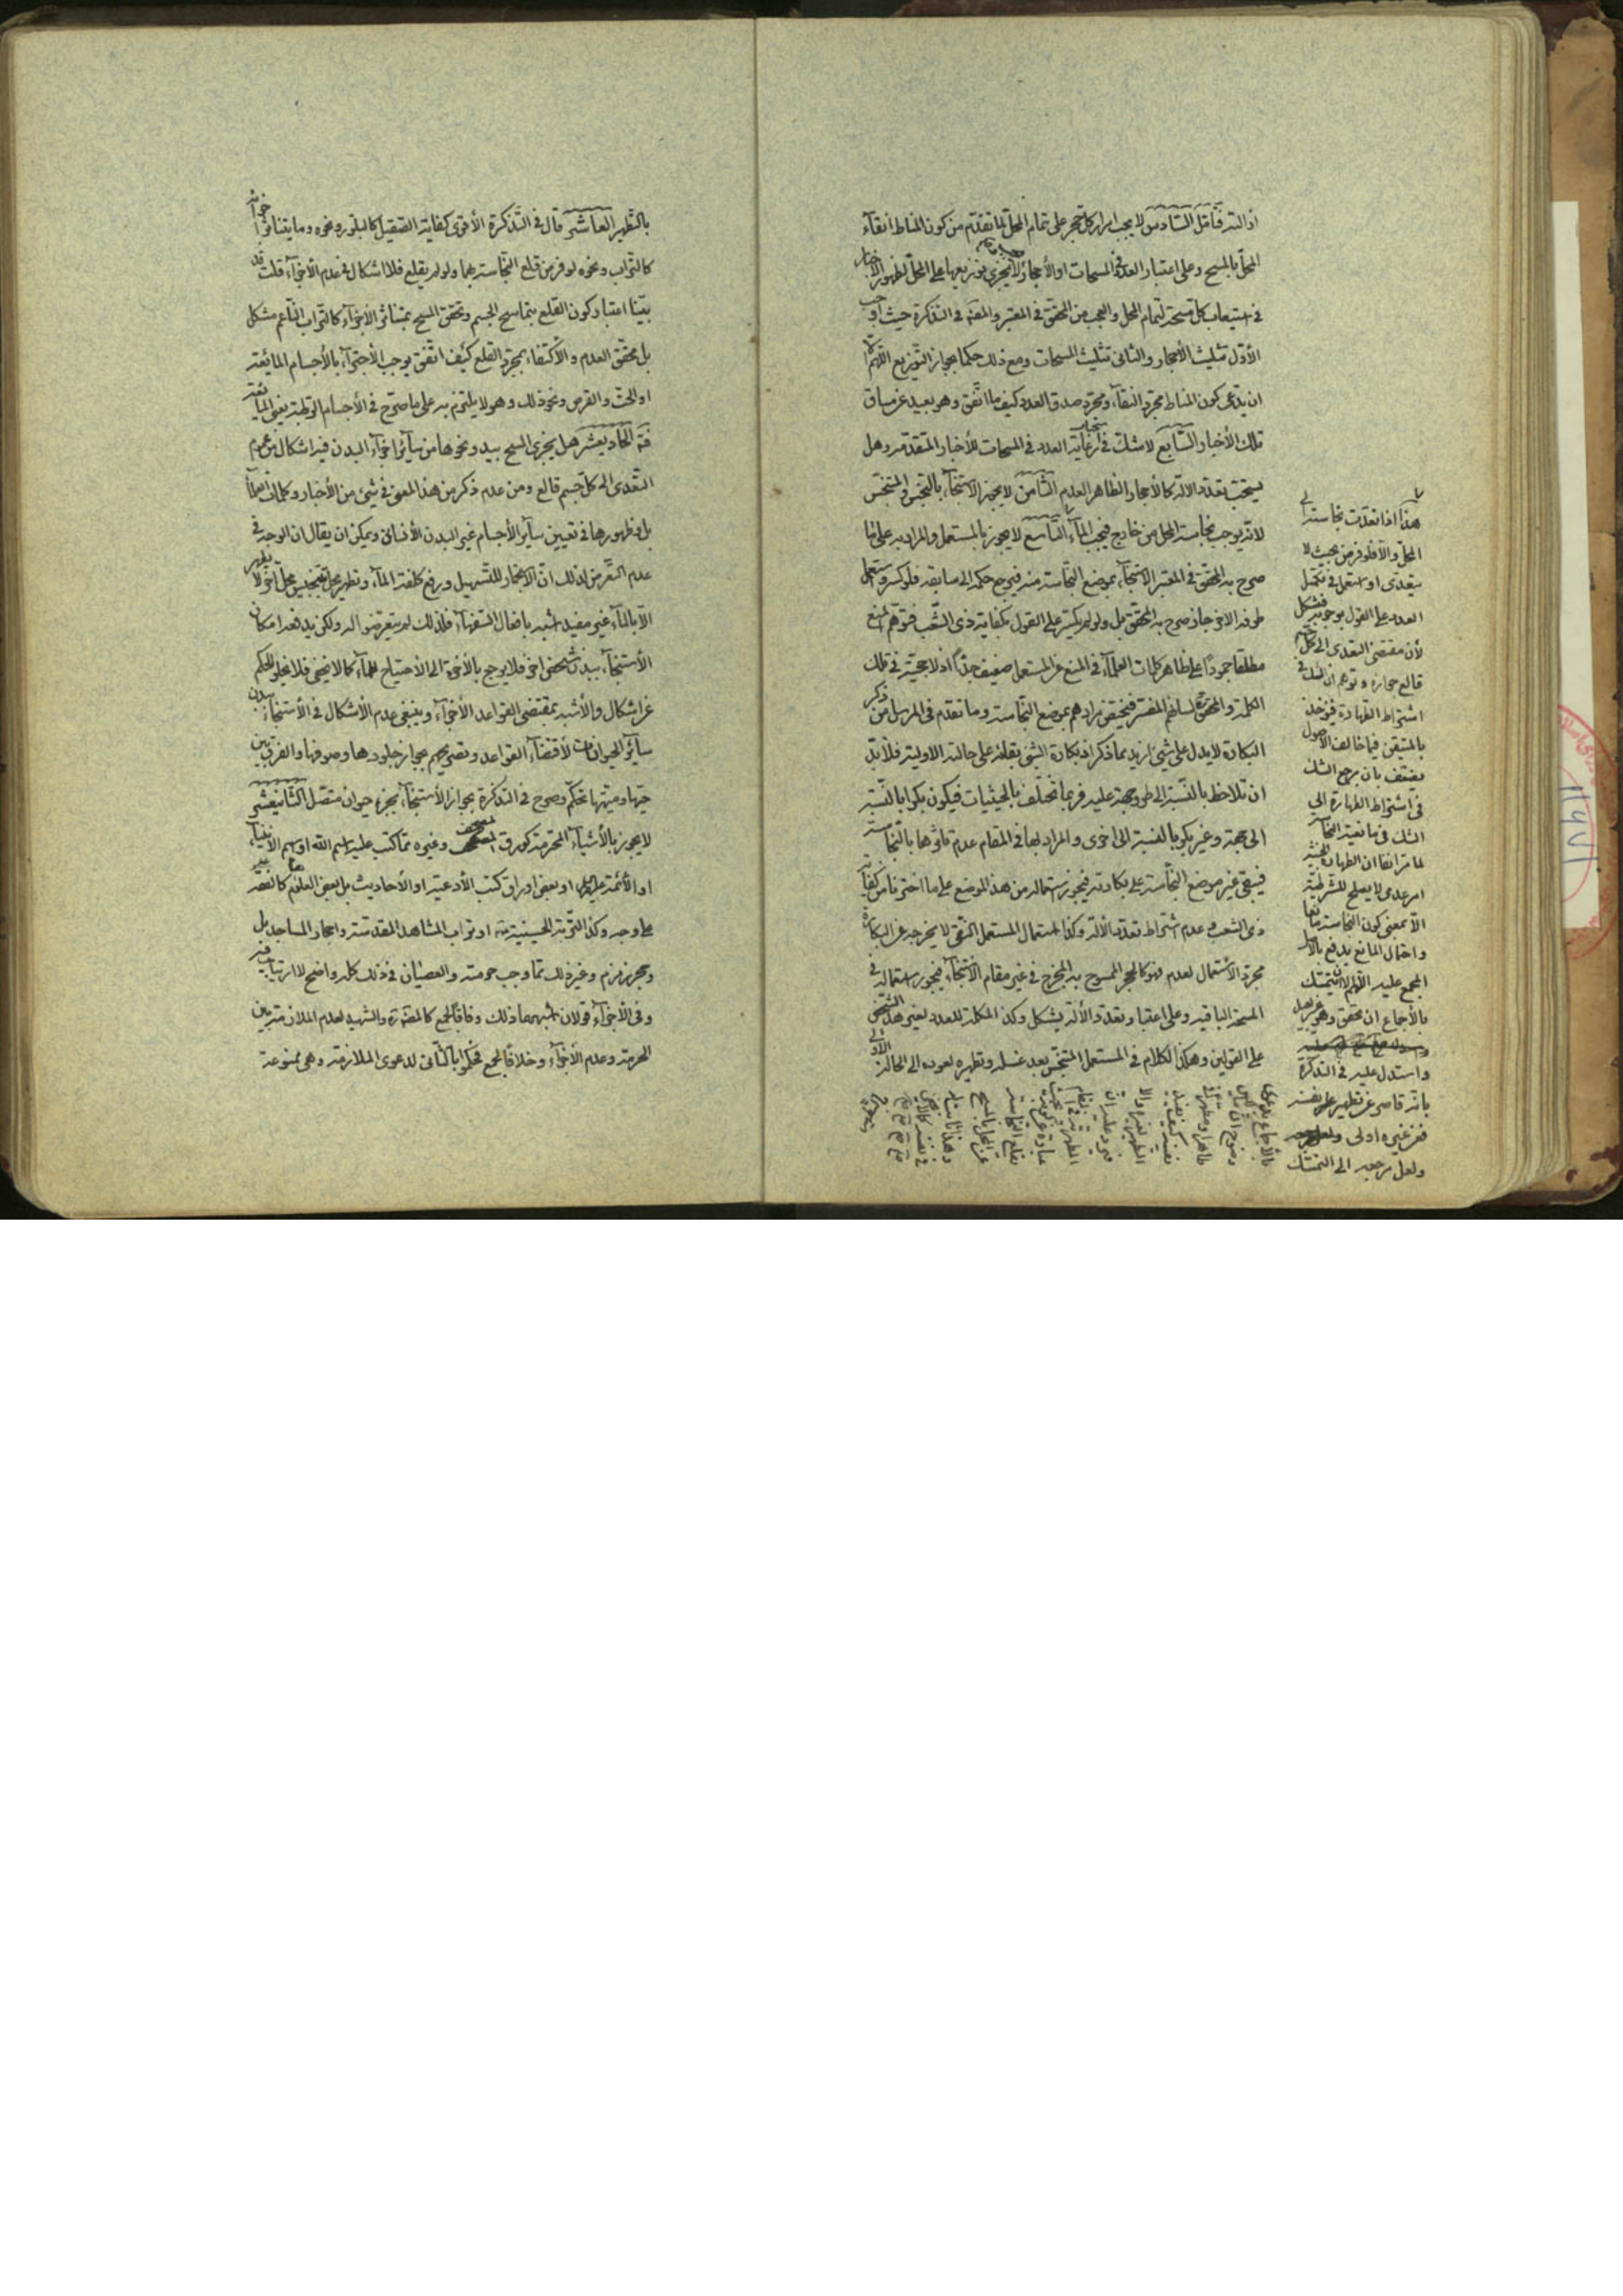 ازالته فتأمل السادس لا يجب امرار كل حجر على تمام المحل لما تقدم من كون المناط انقاء
المحل بالمسح وعلى اعتبار العدد في المسحات او الأحجار لا يجزي توزيعها على المحل لظهور الأخبار
في استيعاب كل مسحة لتمام المحل والعجب من المحقق في المعتبر والعلامة في التذكرة حيث اوجب
الأول تثليث الأحجار والثاني تثليث المسحات ومع ذلك حكما بجواز التوزيع اللهم الا
ان يدعى كون المناط مجرد النقاء ومجرد صدق العدد كيف ما اتفق وهو بعيد عن مساق
تلك الأخبار السابع لا شك في استحباب رعاية العدد في المسحات للأخبار المتقدمة وهل
يستحب تعدد الآلة كالأحجار الظاهر العدم الثامن لا يجوز الاستنجاء بالنجس والمتنجس
لانه يوجب نجاسة المحل من خارج فيجب الماء التاسع لا يجوز بالمستعمل والمراد به على ما
صرح به المحقق في المعتبر الاستنجاء بموضع النجاسة منه فيرجع حكمه الى سابقه فلو كسر واستعمل
طرفه الاخر جاز صرح به المحقق بل ولو لم يكسر على القول بكفاية ذي الشعب فتوهم المنع
مطلقا جمودا على ظاهر كلمات العلماء في المنع عن المستعمل ضعيف جدا اذ لا حجية في تلك
الكلمة والمحقق لسانهم المفسر فيختص مرادهم بموضع النجاسة وما تقدم في المرسل من ذكر
البكارة لا يدل على شيء ازيد مما ذكر اذ بكارة الشيء بقائه على حالته الاولية فلا بد
ان تلاحظ بالنسبة الى طرو جهة عليه فربما تختلف بالحيثيات فيكون بكرا بالنسبة
الى جهة وغير بكر بالنسبة الى اخرى والمراد بها في المقام عدم تاثرها بالنجاسة
فيبقى غير موضع النجاسة على بكارته فيجوز استعماله من هذا الموضع على ما اخترنا من كفاية
ذي الشعب وعدم اشتراط تعدد الآلة وكذا استعمال المستعمل النقي لا يخرجه عن البكارة
مجرد الاستعمال لعدم فهو كالحجر الممسوح به المخرج في غير مقام الاستنجاء فيجوز استعماله في
المسحة الباقية وعلى اعتبار تعدد الآلة يشكل وكذا المكملة للعدد لغير هذا الشخص
على القولين وهكذا الكلام في المستعمل المتنجس بعد غسله وتطهيره لعوده الى الحالة الاولى
هذا اذا تعدت نجاسته الى
المحل والا فلو فرض بحيث لا
يتعدى او استعمل في تكميل
العدد على القول بوجوبه فمشكل
لأن مقتضى التعدي الى كل جسم
قالع جوازه وتوهم ان الشك في
اشتراط الطهارة فيؤخذ
بالمتيقن فيما خالف الأصول
مضعف بان مرجع الشك
في اشتراط الطهارة الى
الشك في مانعية النجاسة
لما مر انفا ان الطهارة الخبثية
امر عدمي لا يصلح للشرطية
الا بمعنى كون النجاسة مانعا
واحتمال المانع يدفع بالأصل
المجمع عليه اللهم الا ان يتمسك
بالأجماع ان تحقق وهو غير بعيد
واستدل عليه في التذكرة
بانه قاصر عن تطهير نفسه
فعن غيره اولى
ولعل مرجعه الى التمسك
بالأجماع بدعوى
وضوح ان ما ليس
طاهرا ومطهرا
لنفسه كيف يفيد
التطهير لغيره والا
فيرد عليه ان
عبارة عن كونه
تقلع النجاسة
عن المحل بالمسح
وهذا ثابت له
في نفسه كالأرض
بالتطهير العاشر قال في التذكرة الأقوى كفاية الصقيل كالبلور ونحوه وما يتناثر اجزائه
كالتراب ونحوه لو فرض قلع النجاسة بهما ولو لم يقلع فلا اشكال في عدم الأجزاء قلت قد
بينا اعتبار كون القلع بتماسح الجسم وتحقق المسح بمتناثر الأجزاء كالتراب الناعم مشكل
بل محقق العدم والأكتفاء بمجرد القلع كيف اتفق يوجب الأجتزاء بالأجسام المائعة
او الحت والقرص ونحو ذلك وهو لا يلتزم به على ما صرح في الأجسام الرطبة يعني المائعة
فته الحاديعشر هل يجزي المسح بيد ونحوها من سائر اجزاء البدن فيه اشكال من عموم
التعدي الى كل جسم قالع ومن عدم ذكر من هذا المعنى في شيء من الأخبار وكلمات العلماء
بل وظهورها في تعيين سائر الأجسام غير البدن الأنساني ويمكن ان يقال ان الوجه في
عدم التعرض لذلك ان الاستنجاء بالأحجار للتسهيل ورفع كلفة الماء وتطهير محل بتنجيس محل اخر لا يطهر
الا بالماء غير مفيد اشبه بافعال السفهاء فلذلك لم يتعرضوا له ولكن يبقى امكان
الأستنجاء ببدن شخص اخر فلا يرجع بالأخرة الى الأحتياج للماء كما لا يخفى فلا يخلو الحكم
عن اشكال والأشبه بمقتضى القواعد الأجزاء وينبغي عدم الأشكال في الأستنجاء ببدن
سائر الحيوانات لأقتضاء القواعد وتصريحهم بجواز جلودها وصوفها والفرق بين
حيها وميتها تحكم وصرح في التذكرة بجواز الأستنجاء بجزء حيوان متصل الثانيعشر
لا يجوز بالأشياء المحترمة كورق المصحف وغيره مما كتب عليه اسم الله او اسم الأنبياء
او الأئمة عليهم السلام او بعض اوراق كتب الأدعية او الأحاديث بل بعض العلوم كالفقه
على وجه وكذا التربة الحسينية او تراب المشاهد المقدسة واحجار المساجد بل
وحجر زمزم وغير ذلك مما وجب حرمته والعصيان في ذلك كله واضح لا ارتياب فيه
وفي الأجزاء قولان اشبههما ذلك وفاقا لجمع كالعلامة والشهيد لعدم الملازمة بين
الحرمة وعدم الأجزاء وخلافا لجمع فحكموا بالثاني لدعوى الملازمة وهي ممنوعة